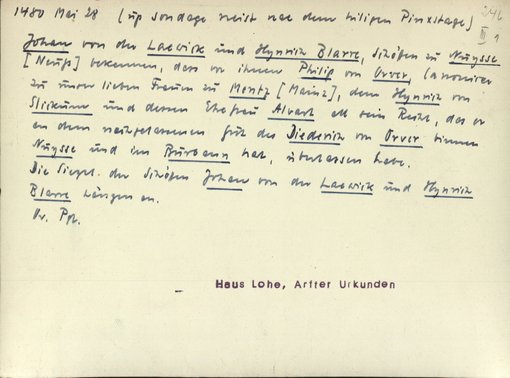 1480 Mai 28 (up sondage neist nae dem hiligen Pinxstage)
246
III 1
Johan von der Laewick und Hynrich Blarre, Schöffen zu Nuysse
[Neuß] bekennen, dass vor ihnen Philip von Orver, Canoniker
zu unser lieben Frauen zu Mentz [Mainz], dem Hynrich von
und dessen Ehefrau Alvart all sein Recht, das er
an dem nachgelassenen gut des Diederich von Orver binnen
Nuysse und im Burbann hat, überlassen habe.
Die Siegel der Schöffen Johan von der Laewick und Hynrich
Blarre hängen an.
Or. Pgt.
Haus Lohe, Arfter Urkunden